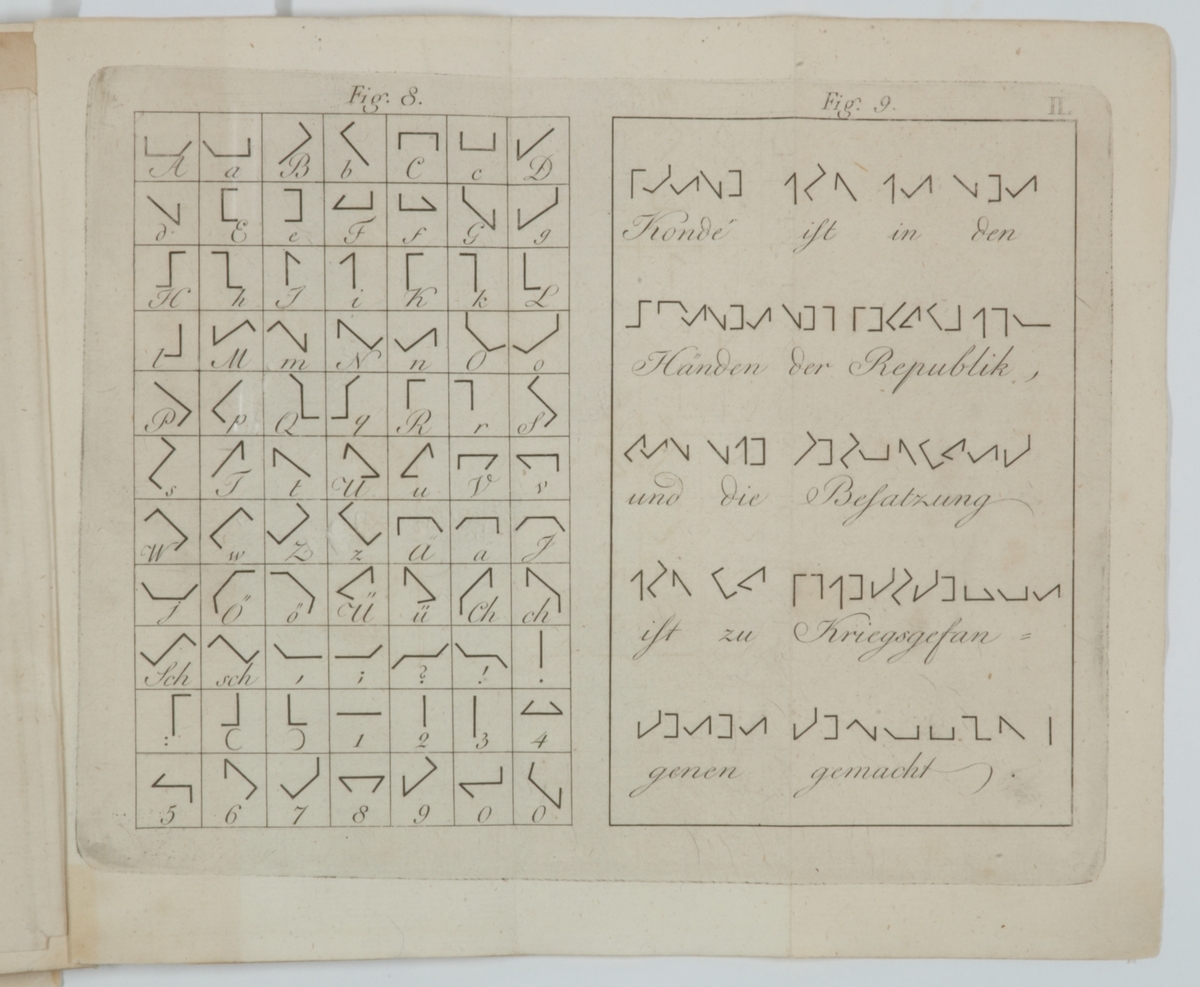 Fig: 8.
A a B b C c D
d E e F f G g
H h I i K k L
l M m N n O o
P p Q q R r S
s T t U u V v
W w Z z Ä ä J
j Ö ö Ü ü Ch ch
Sch sch , ; ? ! .
: ( ) 1 2 3 4
5 6 7 8 9 0 0
Fig: 9.
II.
Kondé ist in den
Händen der Republik,
und die Besatzung
ist zu Kriegsgefan=
genen gemacht.